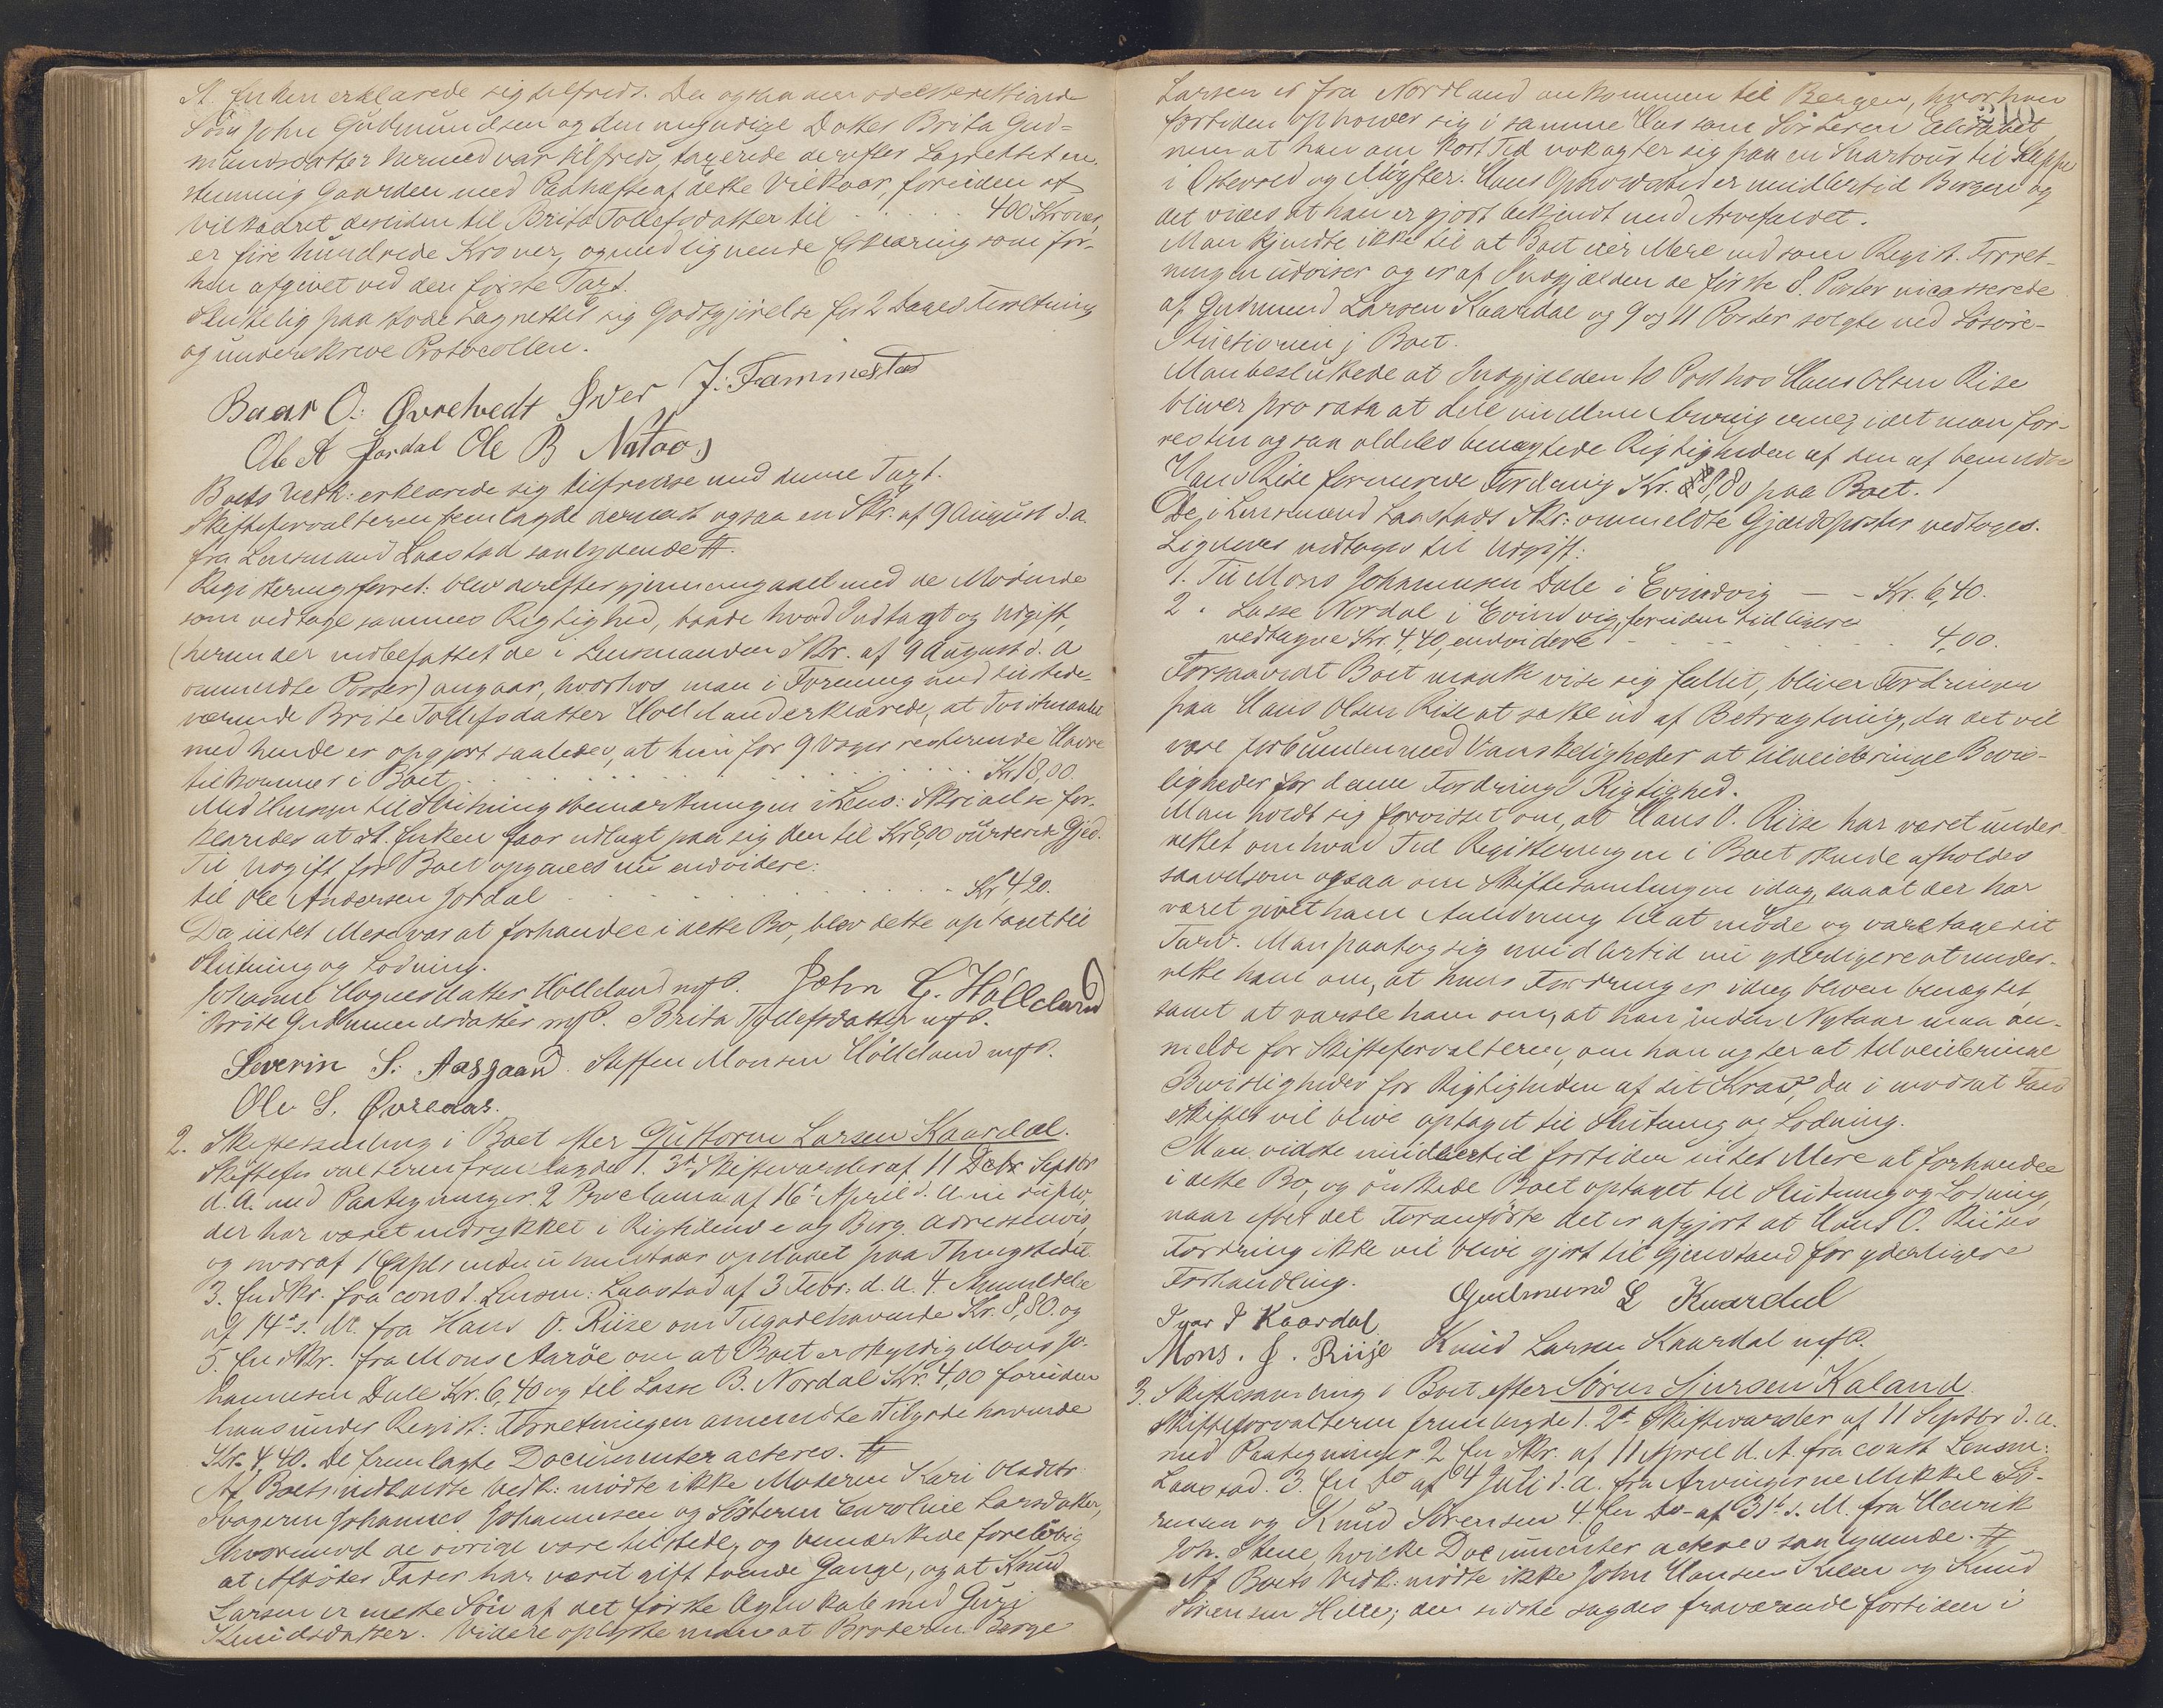 St. Enken erklærede sig tilfreds. Da ogsaa den odelsberettigede
Søn John Gudmundsen og den myndige Datter Brita Gud-
mundsdatter hermed var tilfreds, taxerede derefter Lagrettet en-
stemmig Gaarden med Paahæfte af dette Vilkaar, foruden af
Vilkaaret desuden til Brita Tollefsdatter til 400 Kroner,
er fire hundrede Kroner, og med lignende Erklæring som for-
hen afgivet ved den første Taxt.
Sluttelig paastode Lagrettet sig Godtgjørelse for 2 Dages Forretning
og underskreve Protocollen.
Baar O. Øvretvedt Iver J. Fammestad
Ole A Jordal Ole B Nataas
Boets Vedk: erklærede sig tilfredse med denne Taxt.
Skifteforvalteren fremlagde dernæst ogsaa en Skr. af 9 August d. a.
fra Lensmand Laastad saalydende #.
Registreringsforret: blev derefter gjennemgaaet med de Mødende
som vedtoge sammes Rigtighed, baade hvad Indtægt og Udgift,
(herunder indbefattet de i Lensmanden Skr. af 9 August d. a
ommeldte Poster) angaar, hvorhos man i Forening med tilstede-
værende Brite Tollefsdatter Hølleland erklærede, at
med hende er opgjort saaledes, at hun for 9 Voger resterende Havre
tilkommer i Boet Kr 18,00.
Med Hensyn til Slutningsbemærkningen i Lens: Skrivelse for-
klaredes at St. Enken faar udlagt paa sig den til Kr 8,00 vurderede Gjed.
Til Udgift for Boet opgaves nu endvidere:
til Ole Andersen Jordal Kr 4,20.
Da intet Mere var at forhandle i dette Bo, blev dette optaget til
Slutning og Lodning.
Johanne Haguesdatter Hølleland m. p. P. John G. Hølleland
Brite Gudmundsdatter m. p. P. Brita Tollefsdatter m. p. P.
Severin S. Aasgaard. Steffen Monsen Hølleland m. p. P.
Ole S. Øvredar.
2. Skiftesamling i Boet efter Guttorm Larsen Kaardal.
Skifteforvalteren fremlagde 1. 3de Skiftevarsler af 11 Septbr
d. A. med Paategninger. 2 Proclama af 16de April d. A. in duplo,
der har været indrykket i Rigstidende og Berg. Adresseavis
og hvoraf 1 Expl. endnu henstaar opslaaet paa Thingstedet
3. En Skr. fra const. Lensm: Laastad af 3 Febr: d. a. 4. Anmeldelse
af 14de s. M. fra Hans O. Riise om Tilgodehavende Kr. 8,80. og
5. En Skr. fra Mons Aarøe om at Boet er skyldig Mons Jo-
hannesen Dale Kr. 6,40 og til Lasse B. Nordal Kr. 4,00 foruden
hans under Regist: Forretningen anmeldte Tilgodehavende
Kr. 4,40. De fremlagte Documenter acteres. #
Af Boets indkaldte Vedk: mødte ikke Moderen Kari Olsdtr
Svogeren Johannes Johannesen og Søsteren Caroline Larsdatter,
hvorimod de øvrige vare tilstede, og bemærkede foreløbig
at Afdødes Fader har været gift tvende Gange, og at Knud
Larsen er eneste Søn af det første Ægteskab med Guri
Knudsdatter. Videre oplyste man at Broderen Børge
Larsen er fra Nordland ankommen til Bergen, hvor han
fortiden opholder sig i samme Hus som Søsteren Elisabet
men at han om kort Tid nok agter sig paa en Snartour til Slægt
i Ostevold og Myster. Hans Opholdssted er imidlertid Bergen og
det vides at han er gjort bekjendt med Arvefaldet.
Man kjendte ikke til at Boet eier Mere end som Regist. Forret-
ningen udviser og er af Indgjælden de første 8. Poster incasserede
af Gudmund Larsen Kaardal og 9 og 11 Poster solgte ved Løsøre-
Auctionen i Boet.
Man besluttede at Indgjælden 10 Post hos Hans Olsen Rise
bliver pro rata at dele imellem Arvingerne, idet man for-
resten ogsaa aldeles benægtede Rigtigheden af den af bemeldte
Hans Rise formerede Fordring Kr. 8,80 paa Boet.
De i Lensmand Laastads Skr: ommeldte Gjældsposter vedtoges.
Ligeledes vedtoges til Udgift:
1. Til Mons Johannesen Dale i Evindvig — - Kr. 6,40.
2. Lasse Nordal i Evindvig, foruden tidligere
vedtagne Kr. 4,40, endvidere 4,00.
Forsaavidt Boet maatte vise sig fallit, bliver Fordringen
paa Hans Olsen Rise at sætte ud af Betragtning, da det vil
være forbunden med Vanskeligheder at tilveiebringe Bevis-
ligheder for denne Fordrings Rigtighed.
Man holdt sig forvisset om, at Hans O. Riise har været under-
rettet om hvad Tid Registreringen i Boet skulde afholdes
saavelsom ogsaa om Skiftesamlingen idag, saaat der har
været givet ham Anledning til at møde og varetage sit
Tarv. Man paatog sig imidlertid nu yderligere at under-
rette ham om, at hans Fordring er idag bleven benægtet
samt at varsle ham om, at han inden Nytaar maa an-
melde for Skifteforvalteren, om han agter at tilveiebringe
Bevisligheder for Rigtigheden af sit Krav, da i modsat Fald
Skiftet vil blive optaget til Slutning og Lodning.
Man vidste imidlertid fortiden intet Mere at forhandle
i dette Bo, og ønskede Boet optaget til Slutning og Lodning,
naar efter det Foranførte det er afgjort at Hans O. Riises
Fordring ikke vil blive gjort til Gjenstand for yderligere
Forhandling. Gudmund L Kaardal
Ivar I Kaardal
Mons. J. Riise Knud Larsen Kaardal m. p. P.
3. Skiftesamling i Boet efter Søren Sjursen Kaland
Skifteforvalteren fremlagde 1. 2de Skiftevarsler af 11 Septbr d. a.
med Paategninger. 2 En Skr. af 11 April d. A fra const Lensm:
Laastad. 3. En Do af 4 Juli d. a. fra Arvingerne Mikkel Sø-
rensen og Knud Sørensen 4. En Do - af 31te s. M. fra Henrik
Joh. Stene, hvilke Documenter acteres saalydende. #
Af Boets Vedk: mødte ikke John Hansen Kilen og Knud
Sørensen Hille; den sidste sagdes fraværende fortiden i